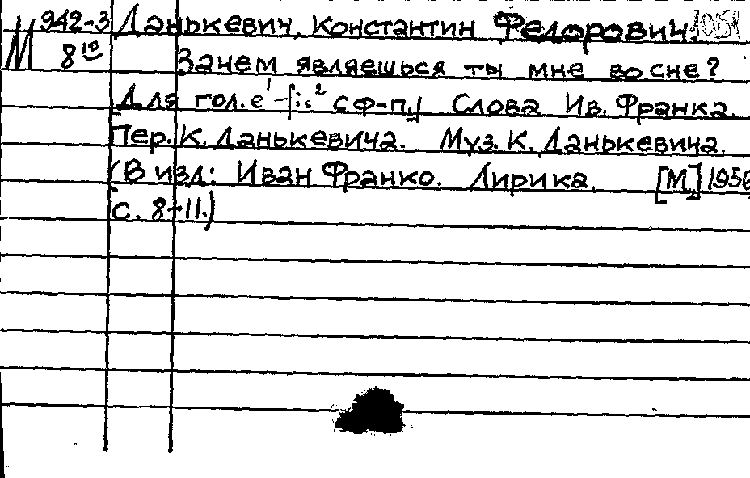 М 942-3 Данькевич, Константин Федорович. 1051
8º Зачем являешься ты мне во сне?
[Для гол. e¹-fis² с ф-п.] Слова Ив. Франка.
Пер. К. Данькевича. Муз. К. Данькевича.
(В изд: Иван Франко. Лирика. [М.] 1956
с. 8-11.)